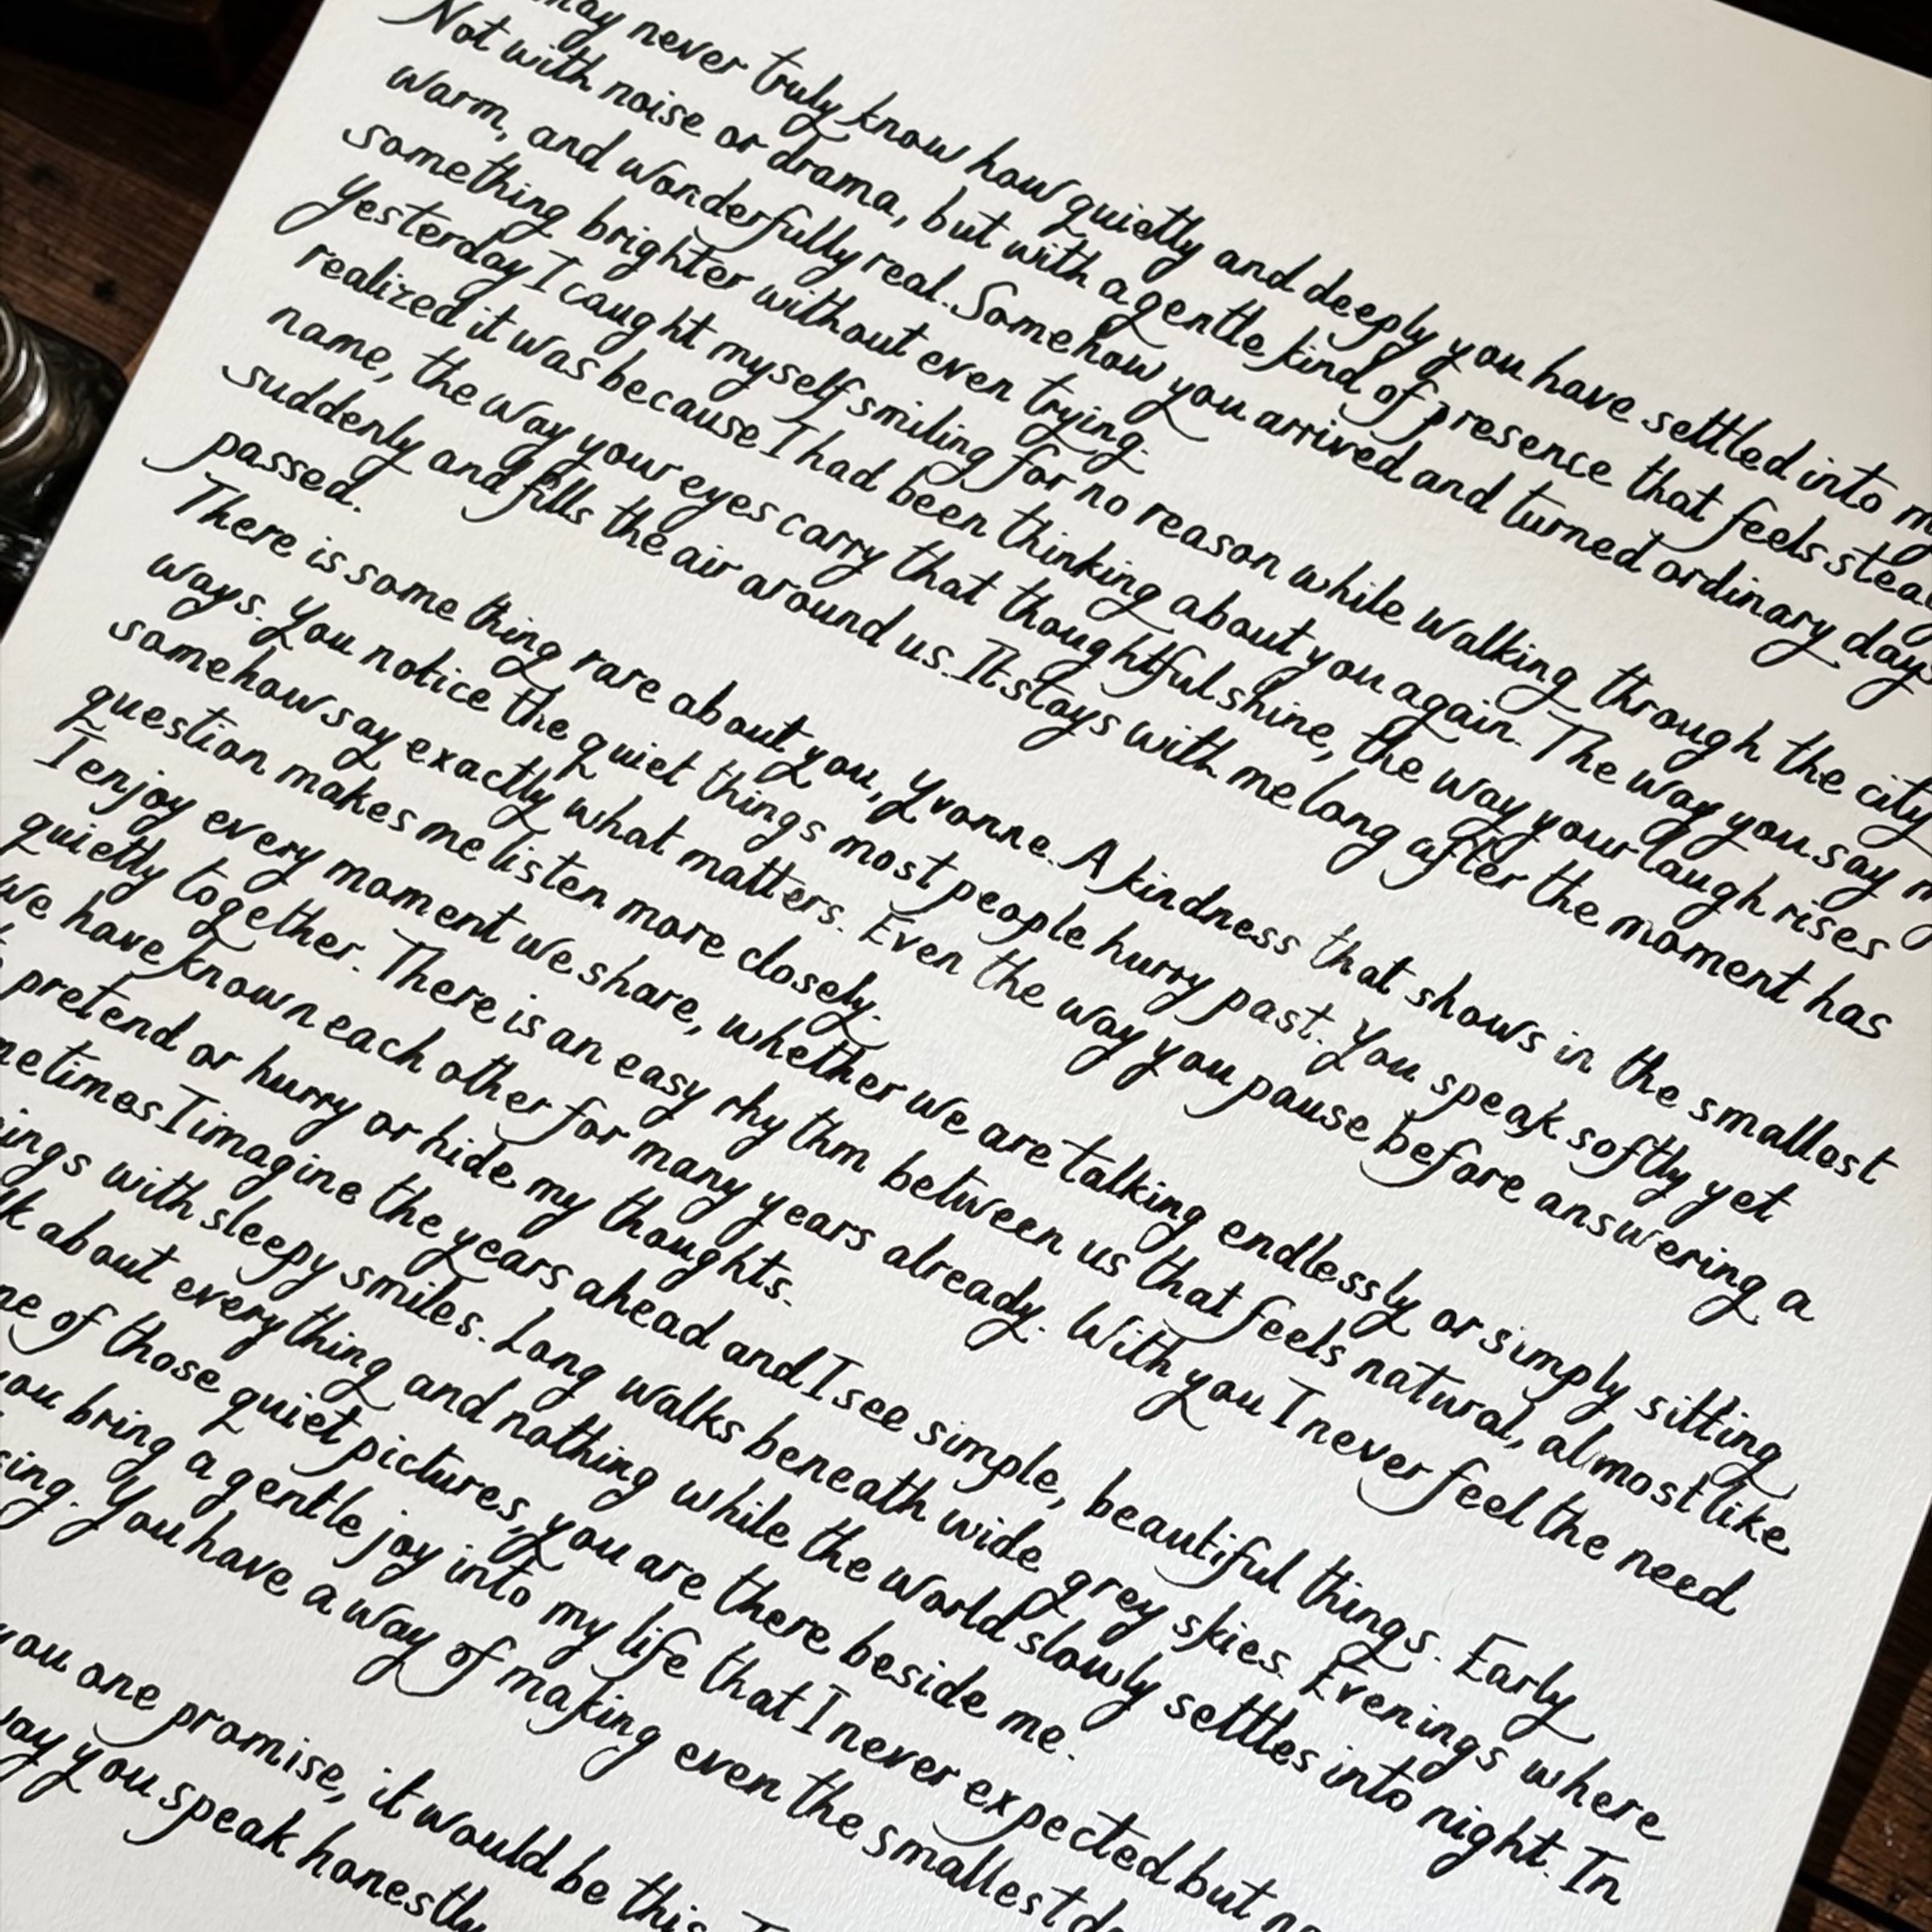 may never truly know how quietly and deeply you have settled into
Not with noise or drama, but with a gentle kind of presence that feels
warm, and wonderfully real. Somehow you arrived and turned ordinary days
something brighter without even trying.
Yesterday I caught myself smiling for no reason while walking through the city
realized it was because I had been thinking about you again. The way you say
name, the way your eyes carry that thoughtful shine, the way your laugh rises
suddenly and fills the air around us. It stays with me long after the moment has
passed.
There is something rare about you, Yvonne. A kindness that shows in the smallest
ways. You notice the quiet things most people hurry past. You speak softly yet
somehow say exactly what matters. Even the way you pause before answering a
question makes me listen more closely.
I enjoy every moment we share, whether we are talking endlessly or simply sitting
quietly together. There is an easy rhythm between us that feels natural, almost like
we have known each other for many years already. With you I never feel the need
pretend or hurry or hide my thoughts.
metimes I imagine the years ahead and I see simple, beautiful things. Early
ings with sleepy smiles. Long walks beneath wide grey skies. Evenings where
lk about everything and nothing while the world slowly settles into night. In
ne of those quiet pictures, you are there beside me.
you bring a gentle joy into my life that I never expected but
sing. You have a way of making even the smallest
you one promise, it would be this.
way you speak honestly